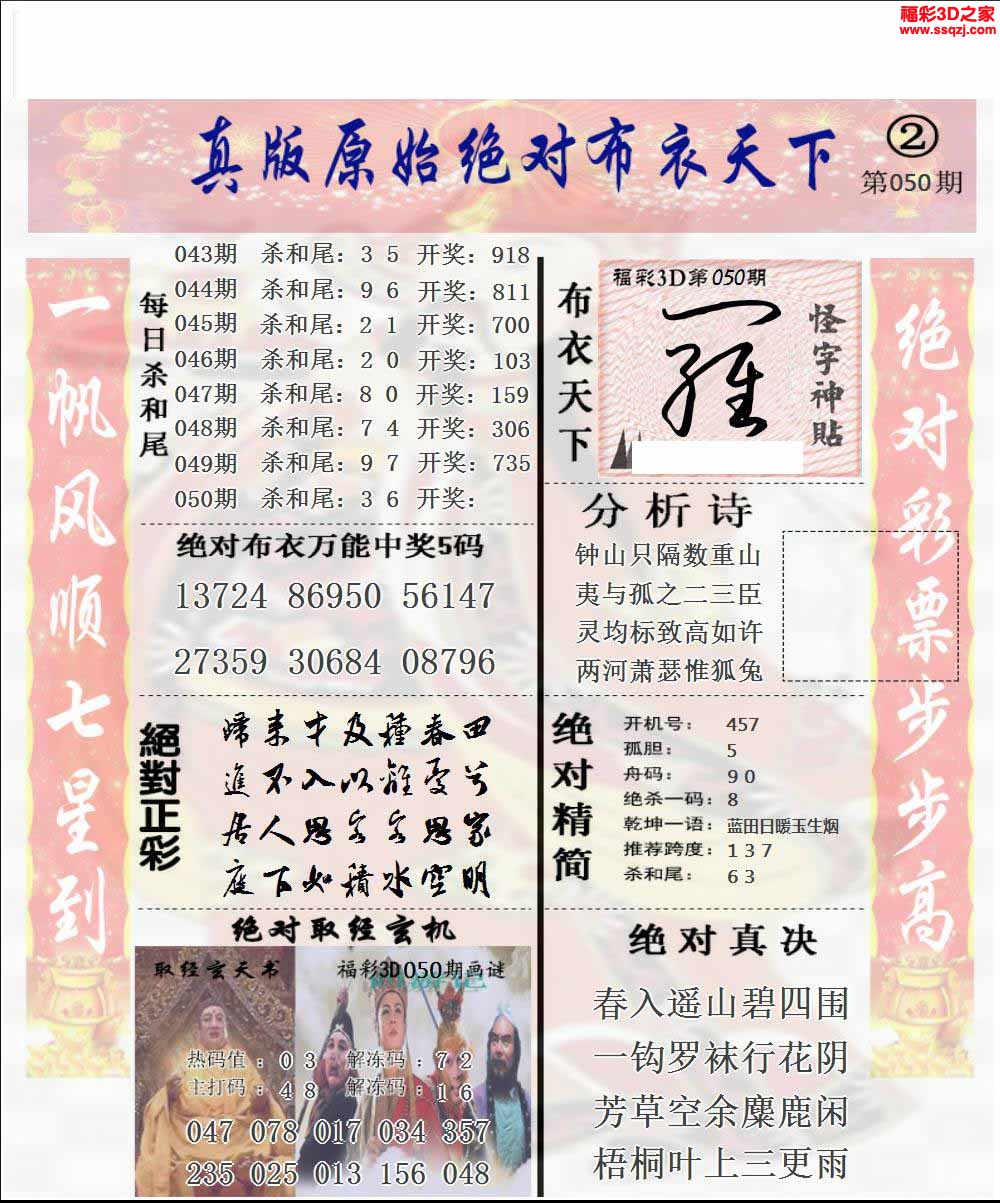 福彩3D之家
www.ssqzj.com
真版原始绝对布衣天下
②
第050期
一帆风顺七星到
每日杀和尾
043期 杀和尾：3 5 开奖：918
044期 杀和尾：9 6 开奖：811
045期 杀和尾：2 1 开奖：700
046期 杀和尾：2 0 开奖：103
047期 杀和尾：8 0 开奖：159
048期 杀和尾：7 4 开奖：306
049期 杀和尾：9 7 开奖：735
050期 杀和尾：3 6 开奖：
绝对布衣万能中奖5码
13724 86950 56147
27359 30684 08796
絕對正彩
歸来才及種春田
進不入以離憂兮
居人思客客思家
庭下如積水空明
绝对取经玄机
取经玄天书
福彩3D050期画谜
热码值：0 3 解冻码：7 2
主打码：4 8 解冻码：1 6
047 078 017 034 357
235 025 013 156 048
布衣天下
福彩3D第050期
怪字神貼
分析诗
钟山只隔数重山
夷与孤之二三臣
灵均标致高如许
两河萧瑟惟狐兔
绝对精简
开机号： 457
孤胆： 5
舟码： 9 0
绝杀一码：8
乾坤一语：蓝田日暖玉生烟
推荐跨度：1 3 7
杀和尾： 6 3
绝对真决
春入遥山碧四围
一钩罗袜行花阴
芳草空余麋鹿闲
梧桐叶上三更雨
绝对彩票步步高